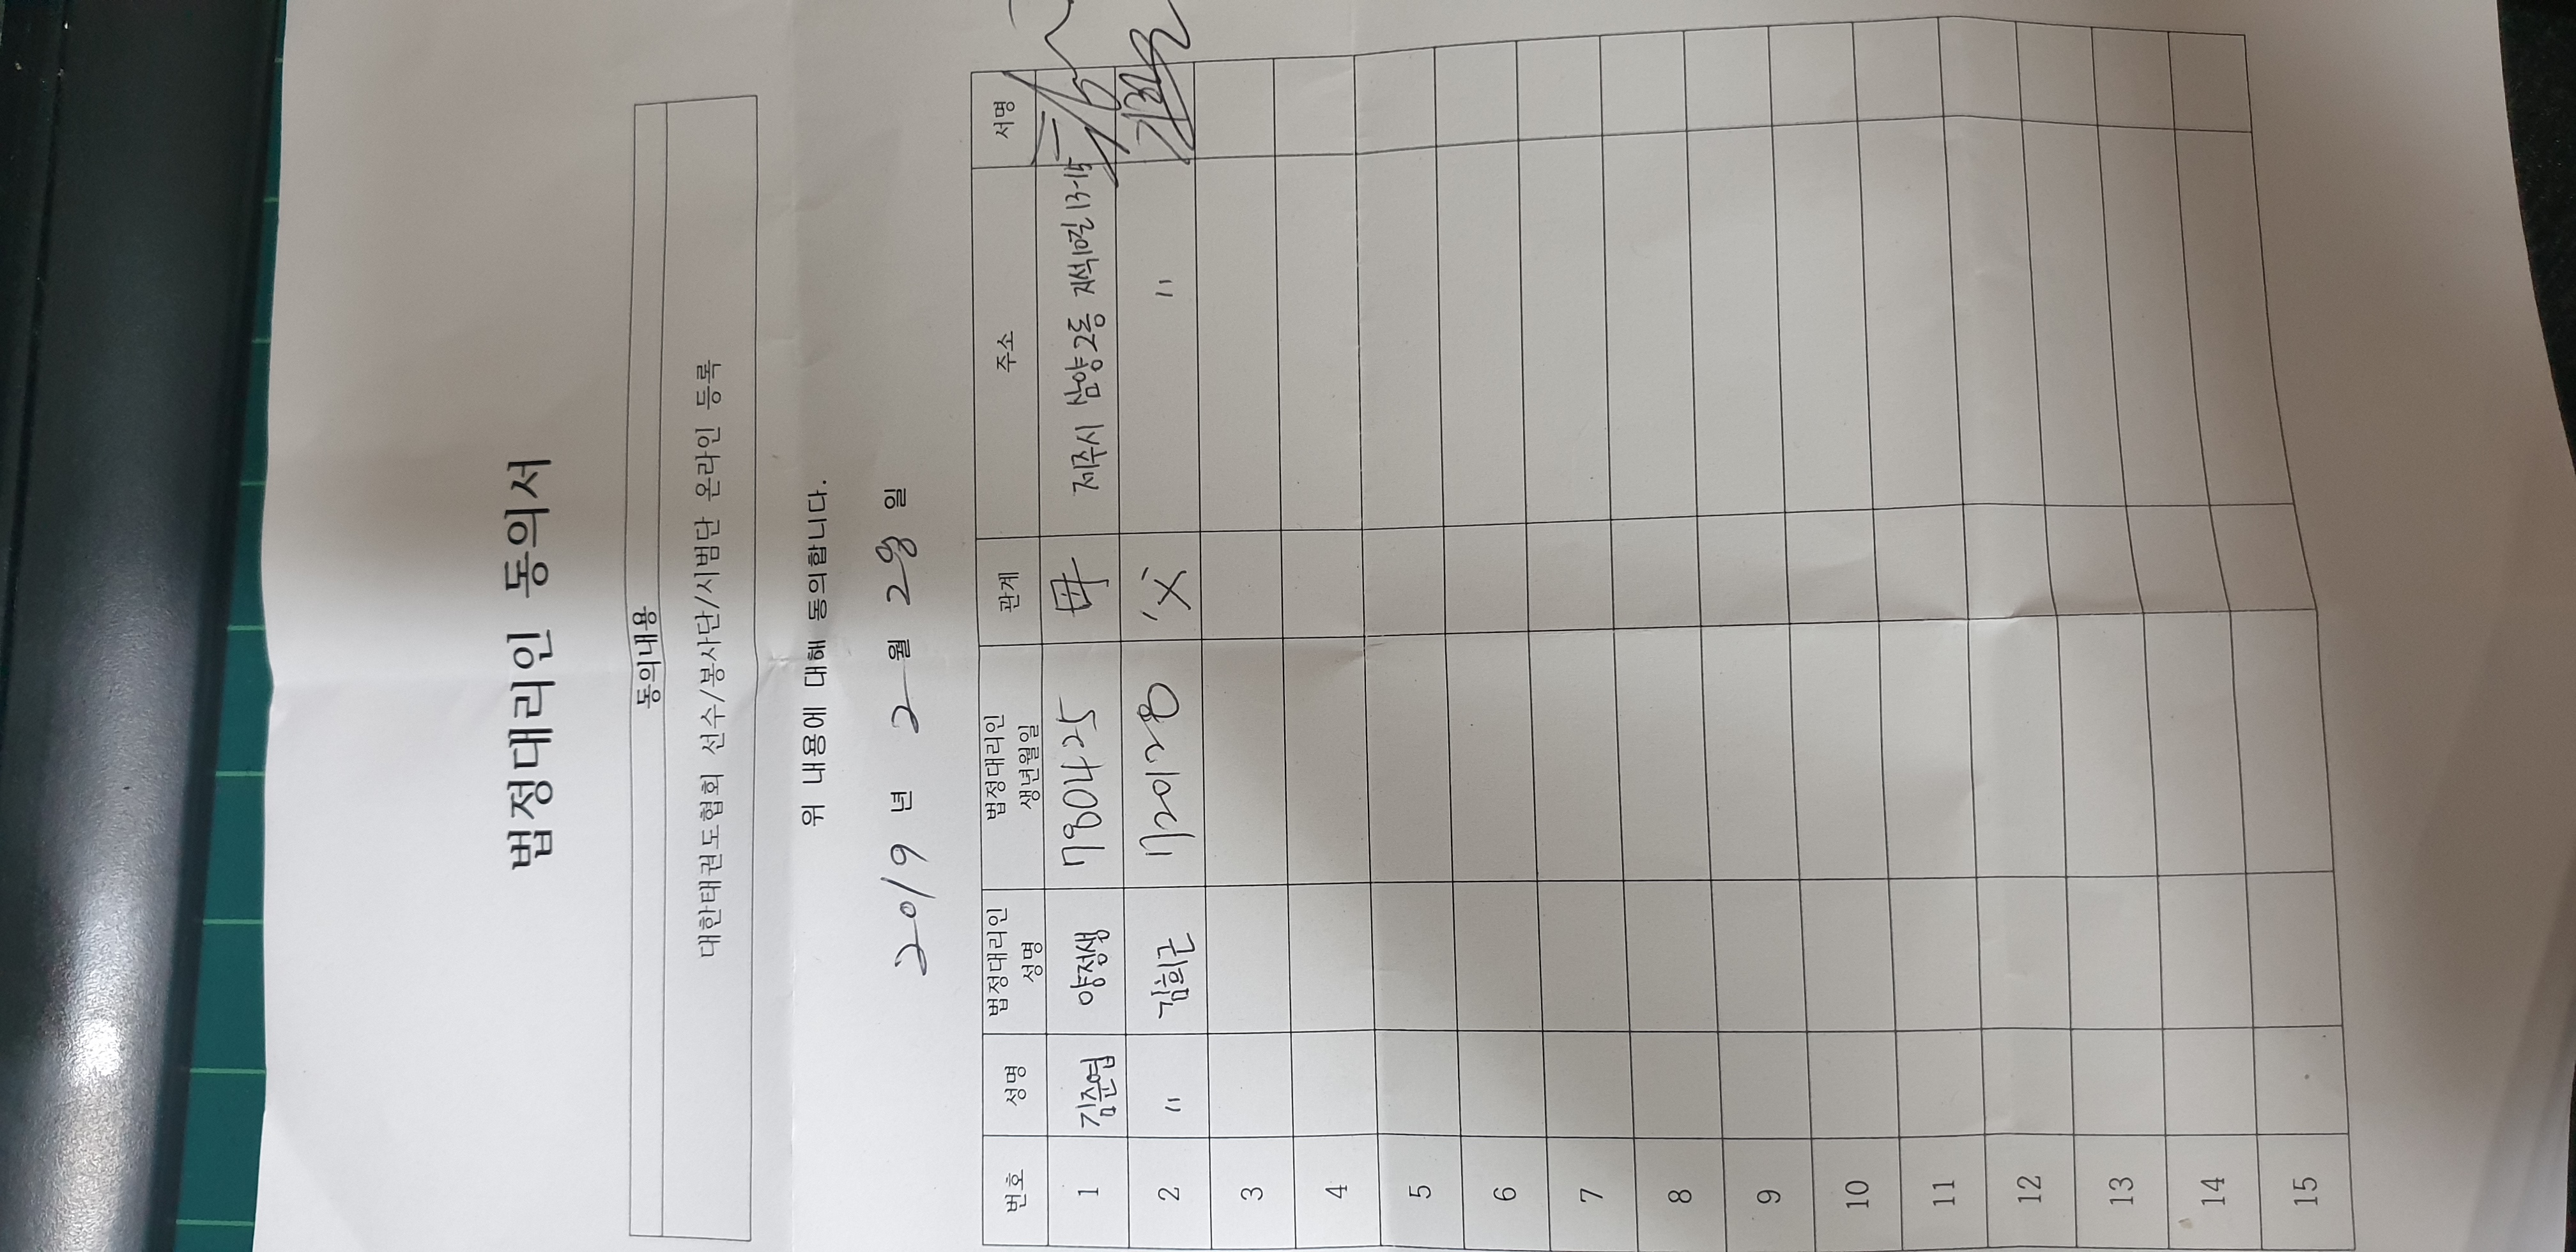 법정대리인 동의서
동의내용
대한태권도협회 선수/봉사단/시범단 온라인 등록
위 내용에 대해 동의합니다.
2019 년 2 월 28 일
번호 성명 법정대리인 성명 법정대리인 생년월일 관계 주소 서명
1 김준엽 양정생 780425 母 제주시 삼양2동 지석10길 13-15
2 〃 김희근 720128 父 〃
3
4
5
6
7
8
9
10
11
12
13
14
15